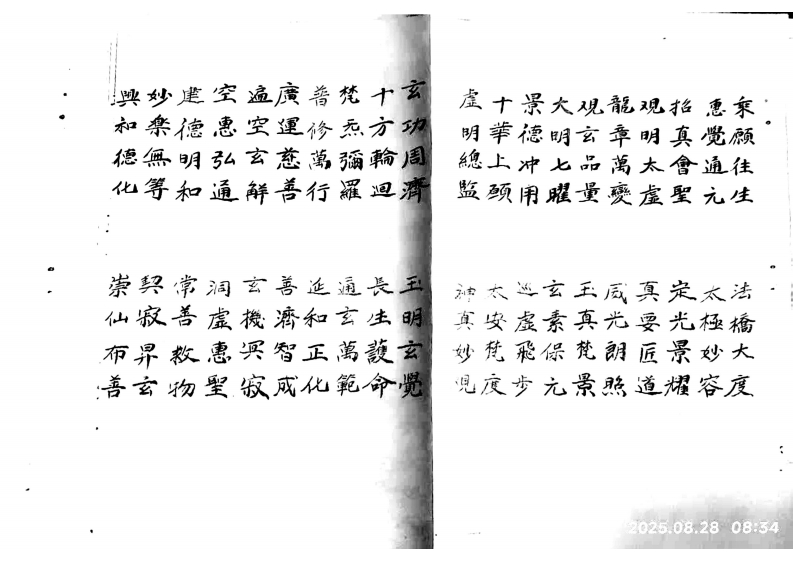 乘願往生 法橋大度
惠覺通元 太極妙容
招真會聖 定光景耀
观明太虛 真要匠道
龍章萬變 威光朗照
观玄品量 玉真梵景
大明七曜 玄素保元
景德冲用 虛飛步
十華上頤 太安梵度
虛明總監 神真妙児
玄功周濟 玉明玄覺
十方輪迴 長生護命
梵炁彌羅 通玄萬範
普修萬行 延和正化
廣運慈善 善濟智成
遍空玄解 玄機溟寂
空惠弘通 洞虛惠聖
建德明和 常善救物
妙樂無等 契寂昇玄
興和德化 崇仙布善
2025.08.28 08:34